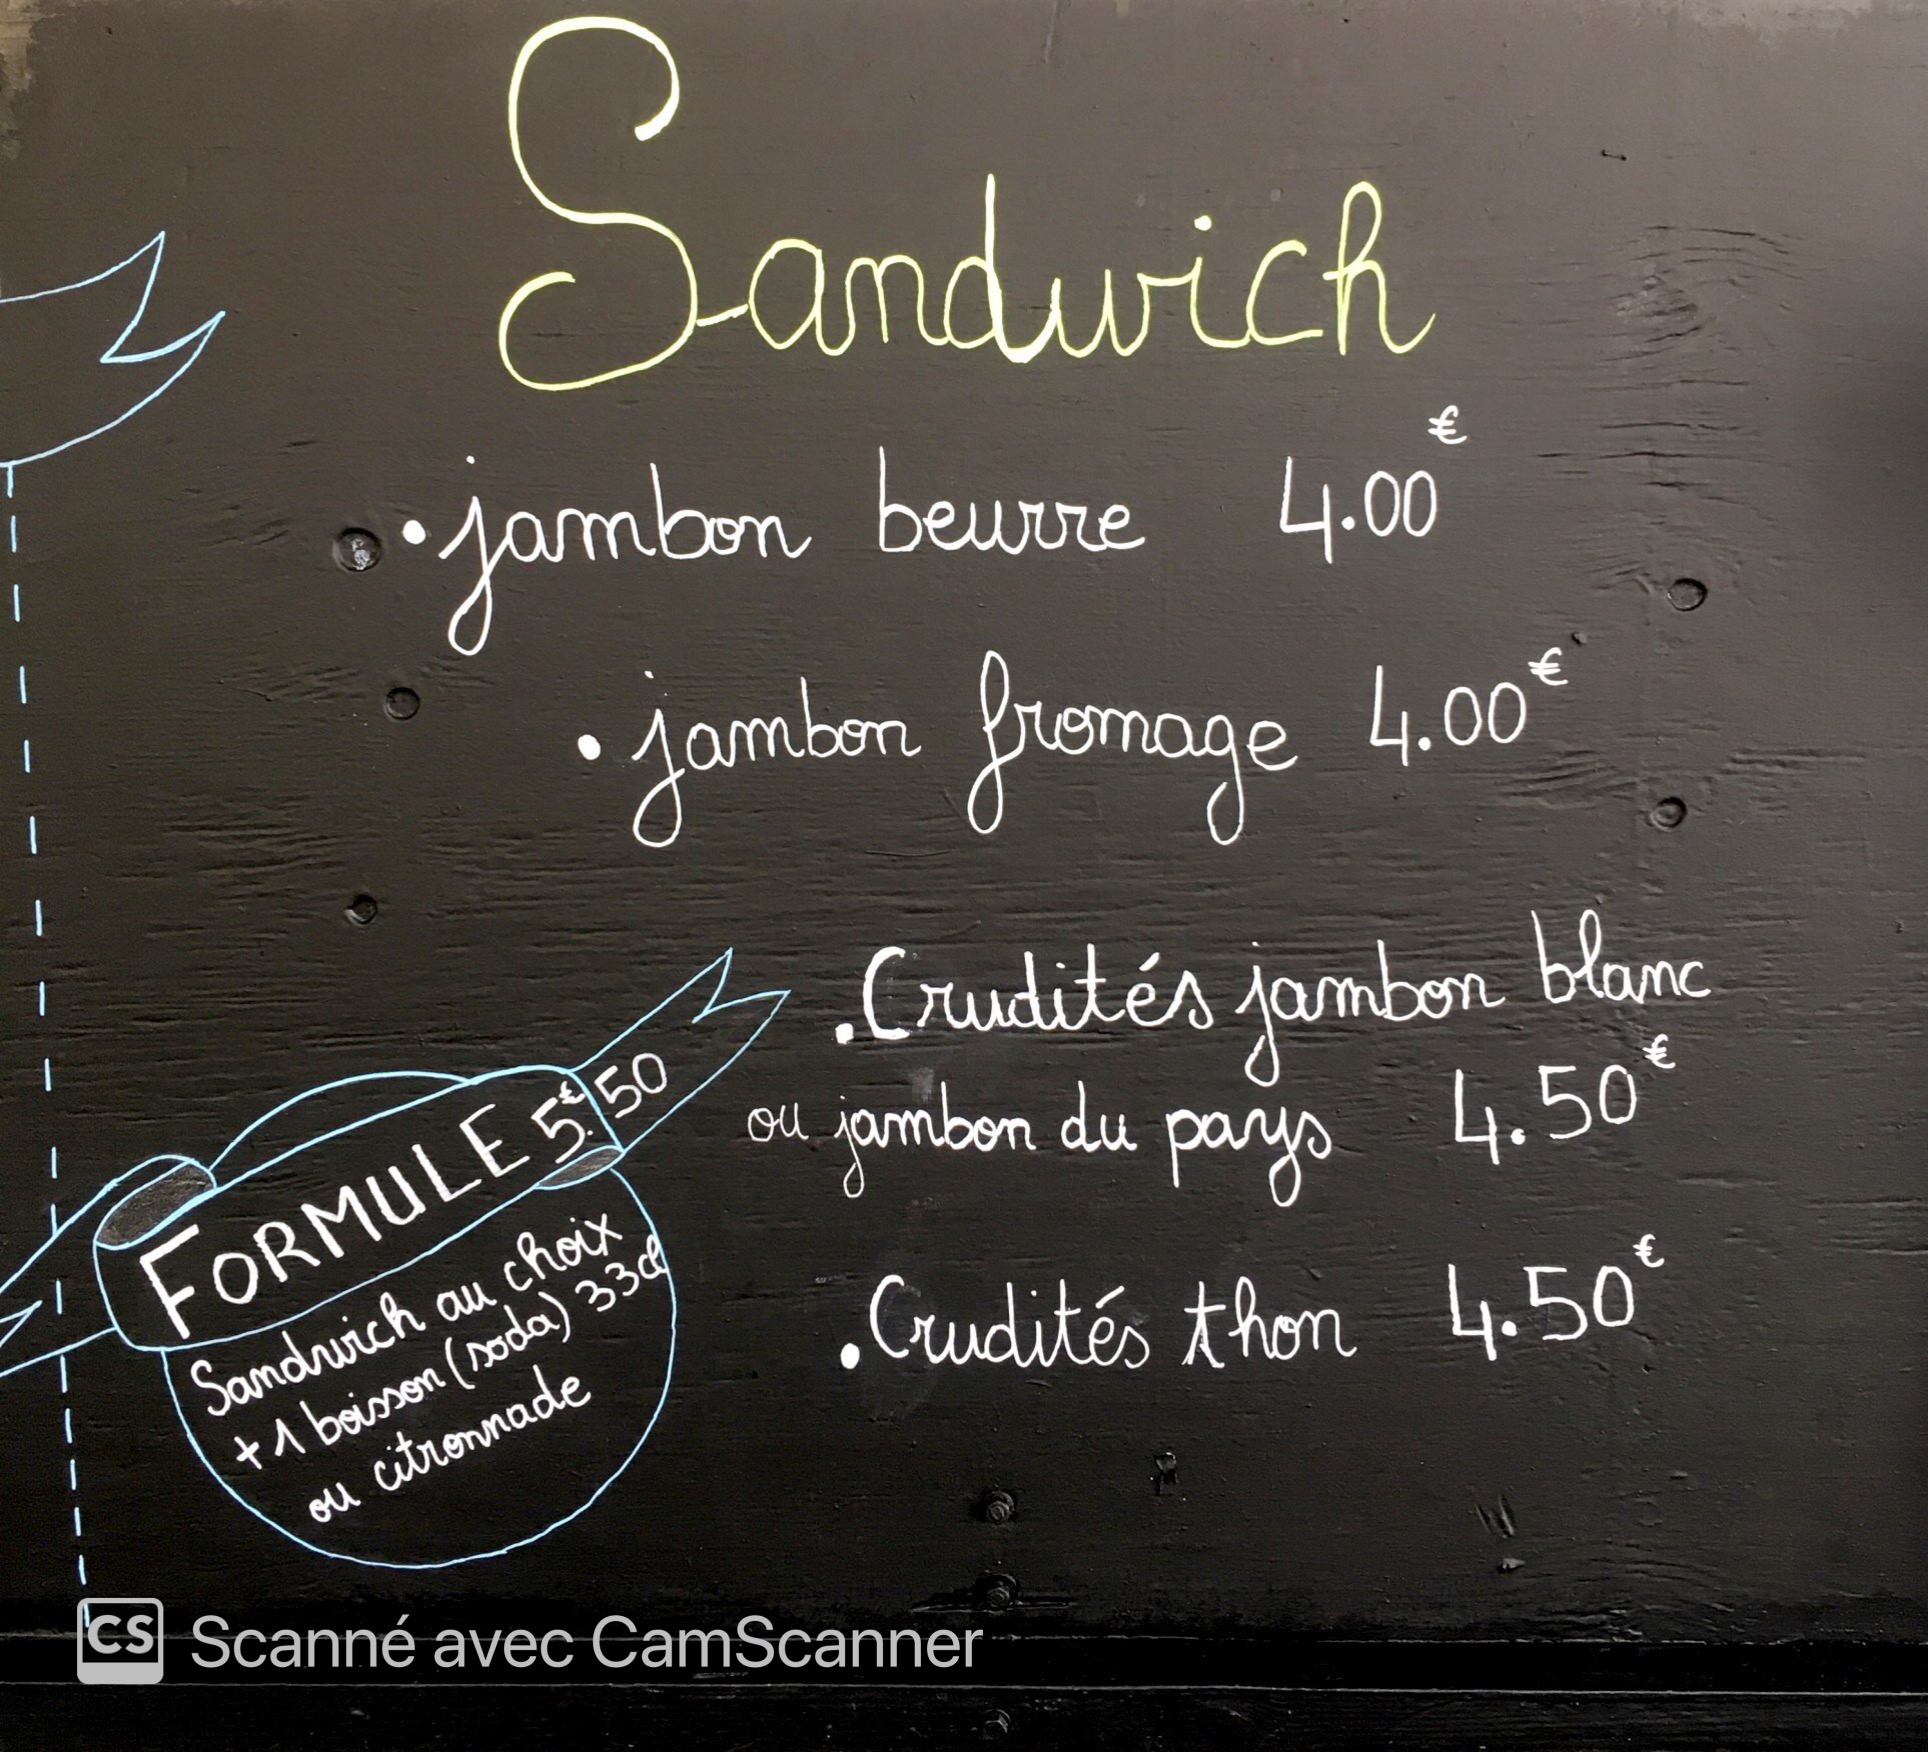 Sandwich
• jambon beurre 4.00€
• jambon fromage 4.00€
. Crudités jambon blanc
ou jambon du pays 4.50€
. Crudités thon 4.50€
FORMULE 5€.50
Sandwich au choix
+ 1 boisson (soda) 33cl
ou citronnade
CS Scanné avec CamScanner